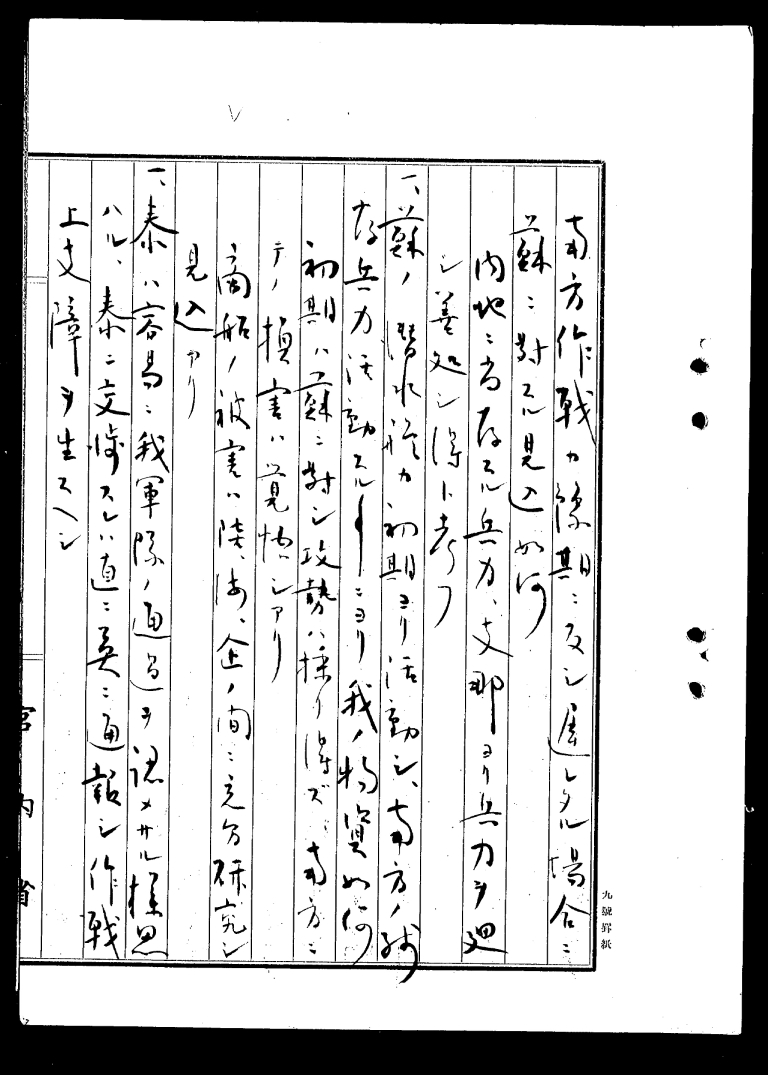 南方作戦カ豫期ニ反シ遅レタル場合ニ
蘇ニ対スル見込如何
内地ニ尚存スル兵力、支那ヨリ兵力ヲ廻
シ善処シ得ト考フ
一、蘇ノ潜水艦カ初期ヨリ活動シ、南方ノ残
存兵力活動スルコトニヨリ我ノ物資如何
初期ハ蘇ニ対シ攻勢ハ採リ得ズ、南方ニ
テノ損害ハ覚悟シアリ
商船ノ被害ハ陸、海、企ノ間ニ充分研究シ
見込アリ
一、泰ハ容易ニ我軍隊ノ通過ヲ認メサル様思
ハル、泰ニ交渉スレハ直ニ英ニ通報シ作戦
上支障ヲ生スヘシ
宮内省
九號罫紙